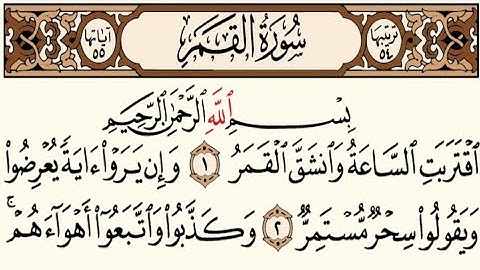 ترتيبها ٥٤ سُورَةُ القَمَرِ آياتها ٥٥
بِسْمِ اللَّهِ الرَّحْمَٰنِ الرَّحِيمِ
ٱقْتَرَبَتِ ٱلسَّاعَةُ وَٱنشَقَّ ٱلْقَمَرُ ١ وَإِن يَرَوْا۟ ءَايَةً يُعْرِضُوا۟
وَيَقُولُوا۟ سِحْرٌ مُّسْتَمِرٌّ ٢ وَكَذَّبُوا۟ وَٱتَّبَعُوٓا۟ أَهْوَآءَهُمْ ۚ